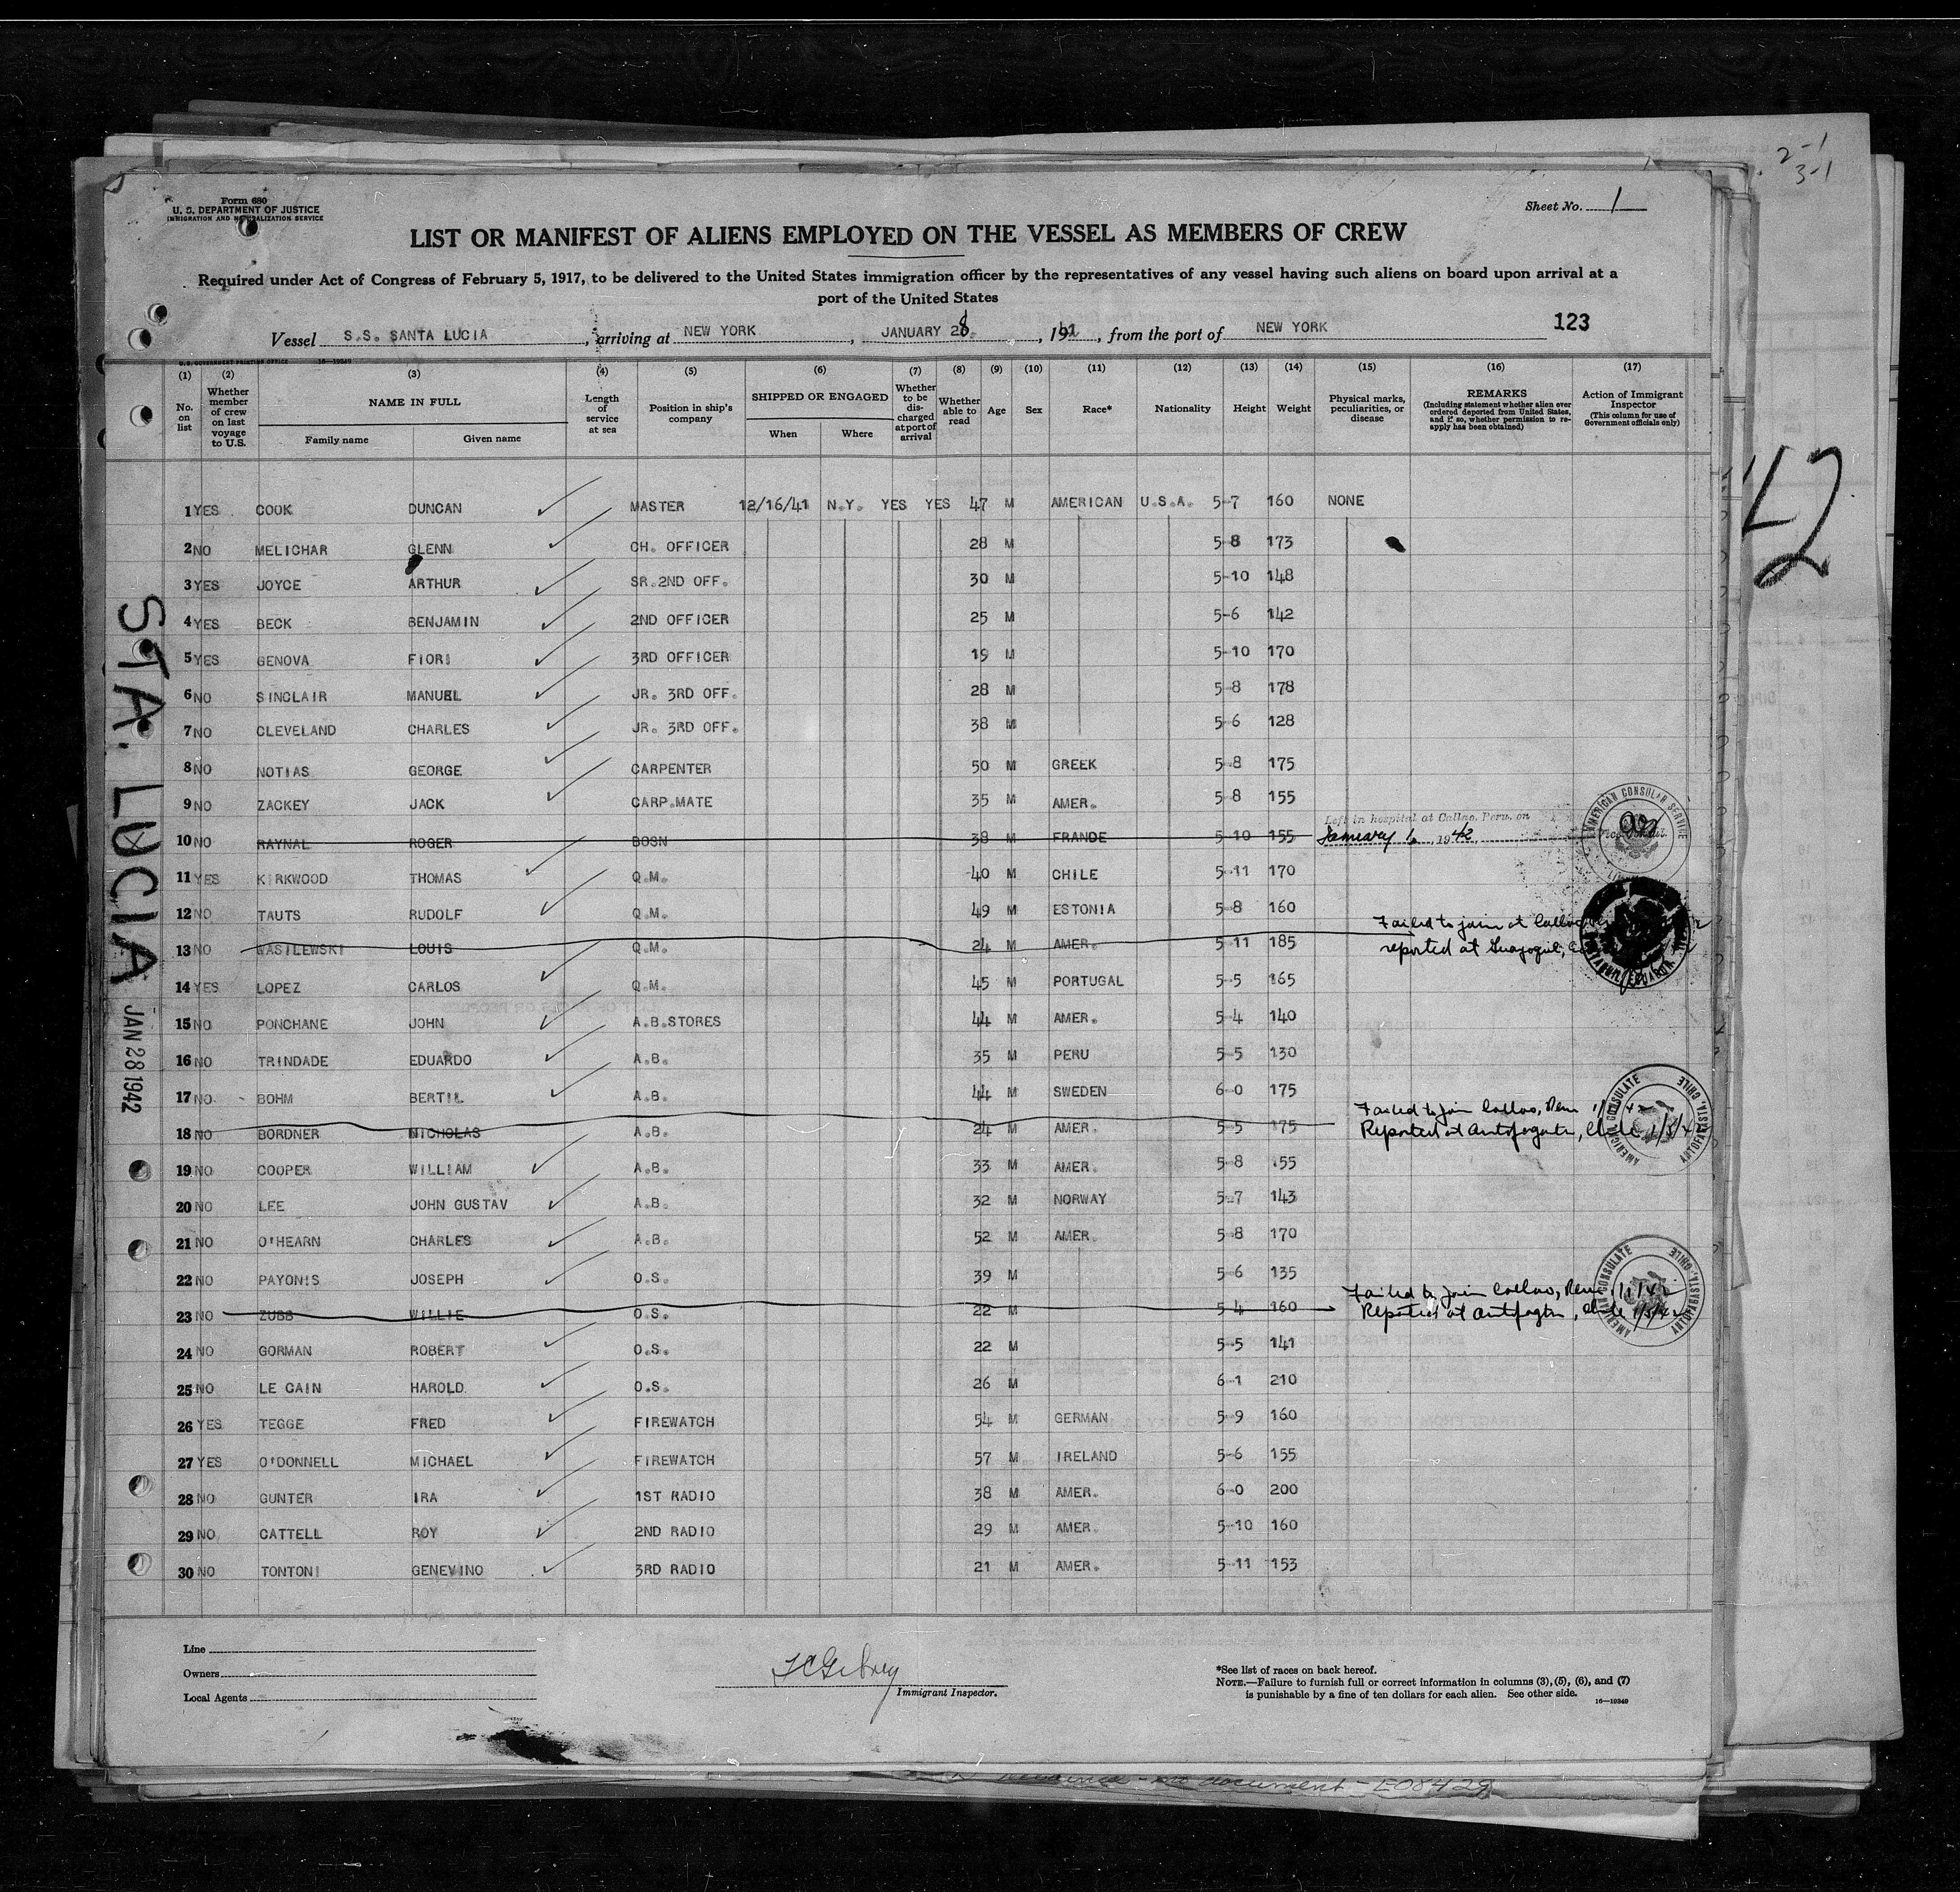 2-1
3-1
Form 680
U. S. DEPARTMENT OF JUSTICE
IMMIGRATION AND NATURALIZATION SERVICE
Sheet No. 1
LIST OR MANIFEST OF ALIENS EMPLOYED ON THE VESSEL AS MEMBERS OF CREW
Required under Act of Congress of February 5, 1917, to be delivered to the United States immigration officer by the representatives of any vessel having such aliens on board upon arrival at a
port of the United States
Vessel S.S. SANTA LUCIA, arriving at NEW YORK, JANUARY 28., 19, from the port of NEW YORK 123
U.S. GOVERNMENT PRINTING OFFICE 16-10349
(1) (2) (3) (4) (5) (6) (7) (8) (9) (10) (11) (12) (13) (14) (15) (16) (17)
No. on list
Whether member of crew on last voyage to U.S.
NAME IN FULL
Family name Given name
Length of service at sea
Position in ship's company
SHIPPED OR ENGAGED
When Where
Whether to be discharged at port of arrival
Whether able to read
Age
Sex
Race*
Nationality
Height
Weight
Physical marks, peculiarities, or disease
REMARKS
(Including statement whether alien ever ordered deported from United States, and if so, whether permission to reapply has been obtained)
Action of Immigrant Inspector
(This column for use of Government officials only)
1 YES COOK DUNCAN MASTER 12/16/41 N.Y. YES YES 47 M AMERICAN U.S.A. 5-7 160 NONE
2 NO MELICHAR GLENN CH. OFFICER 28 M 5-8 173
3 YES JOYCE ARTHUR SR.2ND OFF. 30 M 5-10 148
4 YES BECK BENJAMIN 2ND OFFICER 25 M 5-6 142
5 YES GENOVA FIORI 3RD OFFICER 19 M 5-10 170
6 NO SINCLAIR MANUEL JR. 3RD OFF. 28 M 5-8 178
7 NO CLEVELAND CHARLES JR. 3RD OFF. 38 M 5-6 128
8 NO NOTIAS GEORGE CARPENTER 50 M GREEK 5-8 175
9 NO ZACKEY JACK CARP.MATE 35 M AMER. 5-8 155
10 NO RAYNAL ROGER BOSN 38 M FRANDE 5-10 155 Left in hospital at Callao, Peru, on
January 6, 1942
11 YES KIRKWOOD THOMAS Q.M. 40 M CHILE 5-11 170
12 NO TAUTS RUDOLF Q.M. 49 M ESTONIA 5-8 160
13 NO WASILEWSKI LOUIS Q.M. 24 M AMER. 5-11 185 Failed to join at Callao
reported at Guayaquil,
14 YES LOPEZ CARLOS Q.M. 45 M PORTUGAL 5-5 165
15 NO PONCHANE JOHN A.B.STORES 44 M AMER. 5-4 140
16 NO TRINDADE EDUARDO A.B. 35 M PERU 5-5 130
17 NO BOHM BERTIL A.B. 44 M SWEDEN 6-0 175
18 NO BORDNER NICHOLAS A.B. 24 M AMER. 5-5 175 Failed to join Callao, Peru
Reported at Antofagasta, Chile 1/5/42
19 NO COOPER WILLIAM A.B. 33 M AMER. 5-8 155
20 NO LEE JOHN GUSTAV A.B. 32 M NORWAY 5-7 143
21 NO O'HEARN CHARLES A.B. 52 M AMER. 5-8 170
22 NO PAYONIS JOSEPH O.S. 39 M 5-6 135
23 NO ZUBB WILLIE O.S. 22 M 5-4 160 Failed to join Callao, Peru
Reported at Antofagasta, Chile 1/5/42
24 NO GORMAN ROBERT O.S. 22 M 5-5 141
25 NO LE CAIN HAROLD O.S. 26 M 6-1 210
26 YES TEGGE FRED FIREWATCH 54 M GERMAN 5-9 160
27 YES O'DONNELL MICHAEL FIREWATCH 57 M IRELAND 5-6 155
28 NO GUNTER IRA 1ST RADIO 38 M AMER. 6-0 200
29 NO CATTELL ROY 2ND RADIO 29 M AMER. 5-10 160
30 NO TONTONI GENEVINO 3RD RADIO 21 M AMER. 5-11 153
AMERICAN CONSULAR SERVICE
AMERICAN CONSULATE
ANTOFAGASTA, CHILE
AMERICAN CONSULATE
ANTOFAGASTA, CHILE
STA. LUCIA JAN 28 1942
42
Line
Owners
Local Agents
Immigrant Inspector.
*See list of races on back hereof.
NOTE.—Failure to furnish full or correct information in columns (3), (5), (6), and (7)
is punishable by a fine of ten dollars for each alien. See other side. 16-10349
document - E08429